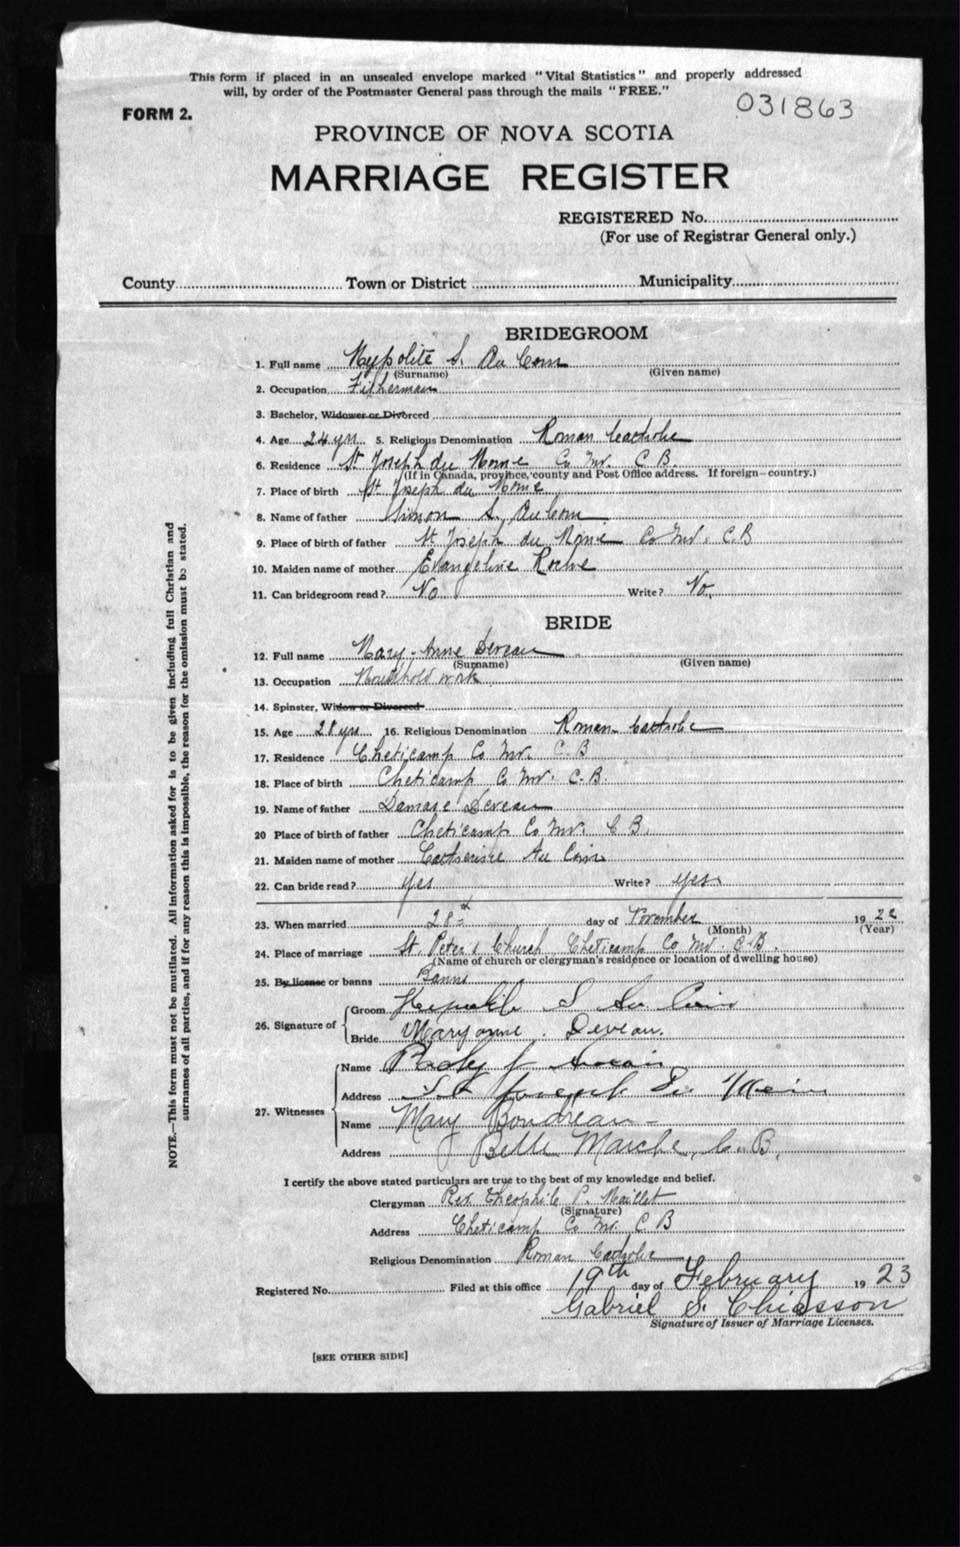 This form if placed in an unsealed envelope marked "Vital Statistics" and properly addressed
will, by order of the Postmaster General pass through the mails "FREE."
FORM 2.
031863
PROVINCE OF NOVA SCOTIA
MARRIAGE REGISTER
REGISTERED No.
(For use of Registrar General only.)
County Town or District Municipality
BRIDEGROOM
1. Full name Hypolite S. Au Coin
(Surname) (Given name)
2. Occupation Fisherman
3. Bachelor, Widower or Divorced
4. Age 24 yrs 5. Religious Denomination Roman Catholic
6. Residence St Joseph du Moine Co Inv. C B.
(If in Canada, province, county and Post Office address. If foreign—country.)
7. Place of birth St Joseph du Moine
8. Name of father Simon S. Au Coin
9. Place of birth of father St Joseph du Moine Co Inv. C.B
10. Maiden name of mother Evangeline Roche
11. Can bridegroom read? No Write? No.
BRIDE
12. Full name Mary-Anne Deveau
(Surname) (Given name)
13. Occupation Household work
14. Spinster, Widow or Divorced
15. Age 28 yrs 16. Religious Denomination Roman Catholic
17. Residence Cheticamp Co Inv. C.B
18. Place of birth Cheticamp Co Inv. C.B.
19. Name of father Damase Deveau
20 Place of birth of father Cheticamp Co Inv. C B.
21. Maiden name of mother Catherine Au Coin
22. Can bride read? yes Write? yes
23. When married 28 day of November 19 22
(Month) (Year)
24. Place of marriage St. Peter's Church Cheticamp Co Inv. C-B.
(Name of church or clergyman's residence or location of dwelling house)
25. By license or banns Banns
26. Signature of
Groom S Au Coin
Bride Maryanne Deveau.
27. Witnesses
Name
Address St Joseph Du Moin
Name Mary Boudreau
Address Belle Marche, C. B.
I certify the above stated particulars are true to the best of my knowledge and belief.
Clergyman Rev. Theophile P. Maillet
(Signature)
Address Cheticamp Co Inv. C B
Religious Denomination Roman Catholic
Registered No. Filed at this office 19th day of February 19 23
Gabriel S. Chiasson
Signature of Issuer of Marriage Licenses.
[SEE OTHER SIDE]
NOTE.—This form must not be mutilated. All information asked for is to be given including full Christian and
surnames of all parties, and if for any reason this is impossible, the reason for the omission must be stated.